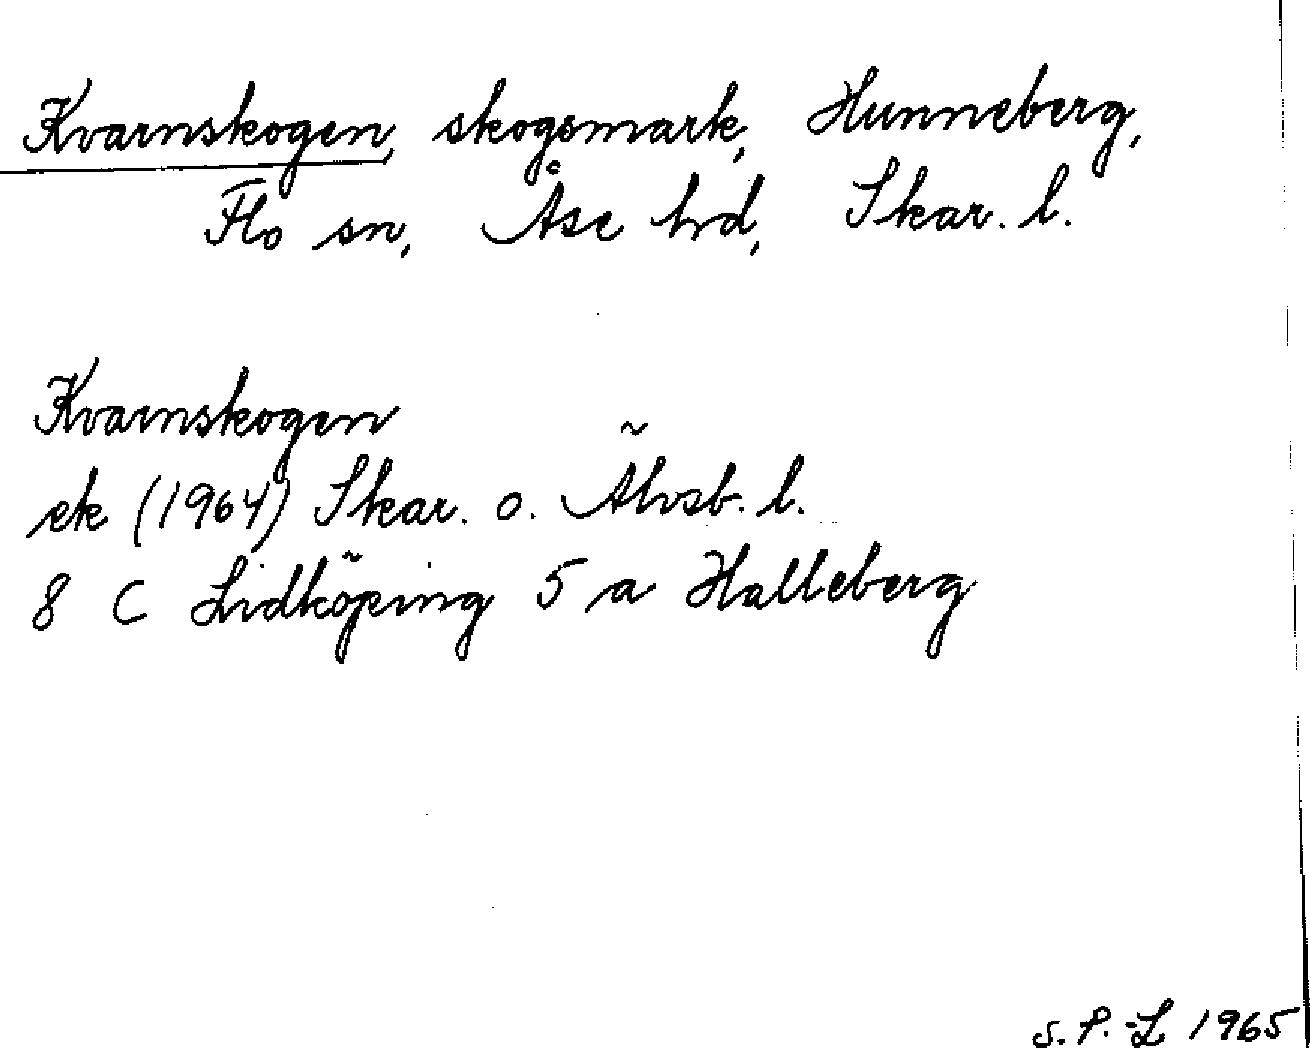 Kvarnskogen, skogsmark, Hunneberg,
Flo sn, Åse hd, Skar. l.
Kvarnskogen
ek (1964) Skar. o. Älvsb. l.
8 C Lidköping 5 a Halleberg
S. P.-L 1965